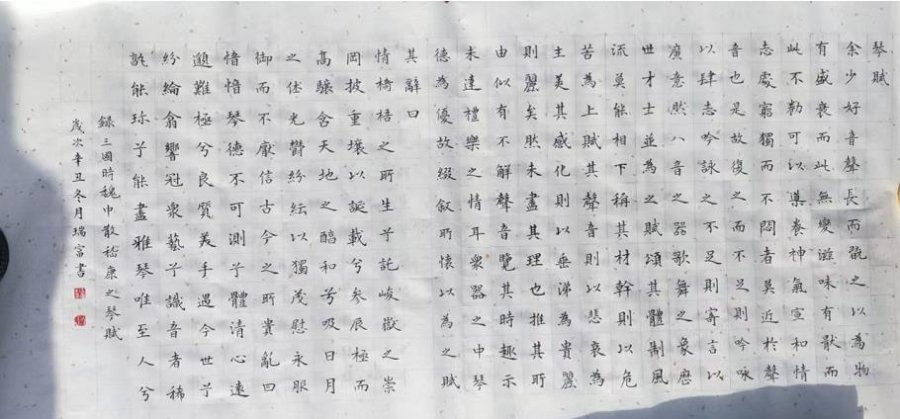 琴賦
余少好音聲長而翫之以為物
有盛衰而此無變滋味有猒而
此不勌可以導養神氣宣和情
志處窮獨而不悶者莫近於聲
音也是故復之而不足則吟咏
以肆志吟詠之不足則寄言以
廣意然八音之器歌舞之象歷
世才士並為之賦頌其體制風
流莫能相下稱其材幹則以危
苦為上賦其聲音則以悲哀為
主美其感化則以垂涕為貴麗
則麗矣然未盡其理也推其所
由似有不解聲音覽其時趣示
未達禮樂之情耳衆器之中琴
德為優故綴叙所懷以為之賦
其辭曰
情椅梧之所生兮託峻嶽之崇
岡披重壤以誕載兮參辰極而
高驤含天地之醇和兮吸日月
之休光鬱紛紜以獨茂慰永服
御而不厭信古今之所貴亂曰
愔愔琴德不可測兮體清心遠
邈難極兮良質美手遇今世兮
紛綸翕響冠衆藝兮識音者稀
孰能珎兮能盡雅琴唯至人兮
錄三國時魏中散嵇康之琴賦
歲次辛丑冬月瑞富書